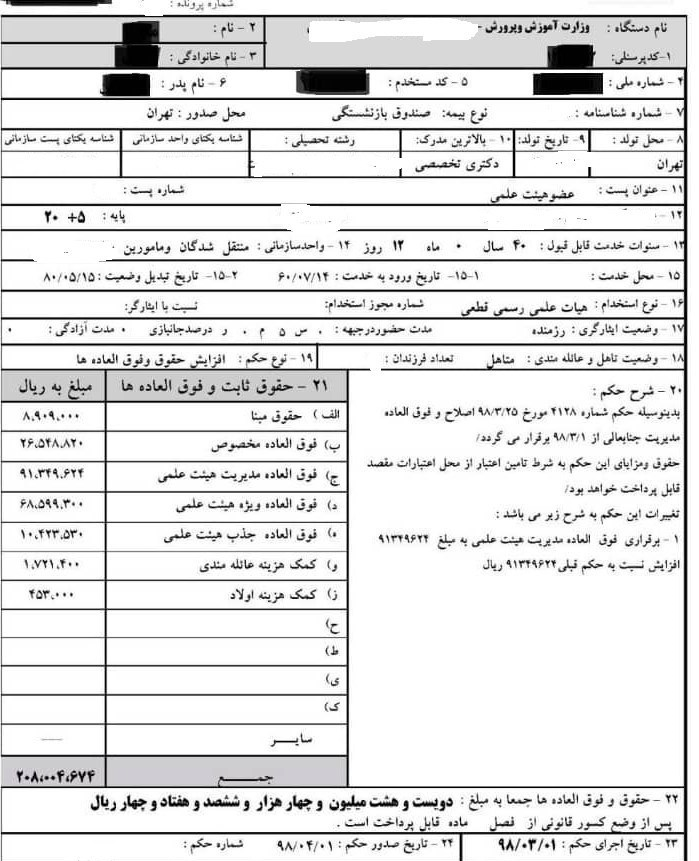 شماره پرونده :
نام دستگاه : وزارت آموزش وپرورش -
۲ - نام :
۱-کدپرسنلی:
۳ - نام خانوادگی :
۴ - شماره ملی :
۵ - کد مستخدم :
۶ - نام پدر :
۷ - شماره شناسنامه :
نوع بیمه: صندوق بازنشستگی
محل صدور : تهران
۸ - محل تولد :
۹- تاریخ تولد:
۱۰ - بالاترین مدرک:
رشته تحصیلی :
شناسه یکتای واحد سازمانی
شناسه یکتای پست سازمانی
تهران
دکتری تخصصی
۱۱ - عنوان پست : عضوهیئت علمی
شماره پست :
۱۲ -
پایه : ۵+ ۲۰
۱۳ - سنوات خدمت قابل قبول : ۴۰ سال ۰ ماه ۱۲ روز
۱۴ - واحدسازمانی : منتقل شدگان ومامورین
۱۵ - محل خدمت :
۱۵-۱- تاریخ ورود به خدمت : ۶۰/۰۷/۱۴
۱۵-۲- تاریخ تبدیل وضعیت : ۸۰/۰۵/۱۵
۱۶ - نوع استخدام : هیات علمی رسمی قطعی
شماره مجوز استخدام:
نسبت با ایثارگر:
۱۷ - وضعیت ایثارگری : رزمنده
مدت حضوردرجبهه : ۰ س ۵ م ۰ ر درصدجانبازی ۰ مدت آزادگی : ۰
۱۸ - وضعیت تاهل و عائله مندی : متاهل
تعداد فرزندان :
۱۹ - نوع حکم : افزایش حقوق وفوق العاده ها
۲۰ - شرح حکم :
بدینوسیله حکم شماره ۴۱۲۸ مورخ ۹۸/۳/۲۵ اصلاح و فوق العاده
مدیریت جنابعالی از ۹۸/۳/۱ برقرار می گردد/
حقوق ومزایای این حکم به شرط تامین اعتبار از محل اعتبارات مقصد
قابل پرداخت خواهد بود/
تغییرات این حکم به شرح زیر می باشد :
۱ - برقراری فوق العاده مدیریت هیئت علمی به مبلغ ۹۱۳۴۹۶۲۴
افزایش نسبت به حکم قبلی ۹۱۳۴۹۶۲۴ ریال
۲۱ - حقوق ثابت و فوق العاده ها
مبلغ به ریال
الف ) حقوق مبنا ۸،۹۰۹،۰۰۰
ب) فوق العاده مخصوص ۲۶،۵۴۸،۸۲۰
ج) فوق العاده مدیریت هیئت علمی ۹۱,۳۴۹,۶۲۴
د) فوق العاده ویژه هیئت علمی ۶۸،۵۹۹,۳۰۰
ه) فوق العاده جذب هیئت علمی ۱۰،۴۲۳،۵۳۰
و) کمک هزینه عائله مندی ۱،۷۲۱،۴۰۰
ز) کمک هزینه اولاد ۴۵۳،۰۰۰
ح)
ط)
ی)
ک)
سایـــر
جمـــــع ۲۰۸،۰۰۴,۶۷۴
۲۲ - حقوق و فوق العاده ها جمعا به مبلغ : دویست و هشت میلیون و چهار هزار و ششصد و هفتاد و چهار ریال
پس از وضع کسور قانونی از فصل ماده قابل پرداخت است .
۲۳ - تاریخ اجرای حکم : ۹۸/۰۳/۰۱
۲۴ - تاریخ صدور حکم : ۹۸/۰۴/۰۱
شماره حکم :